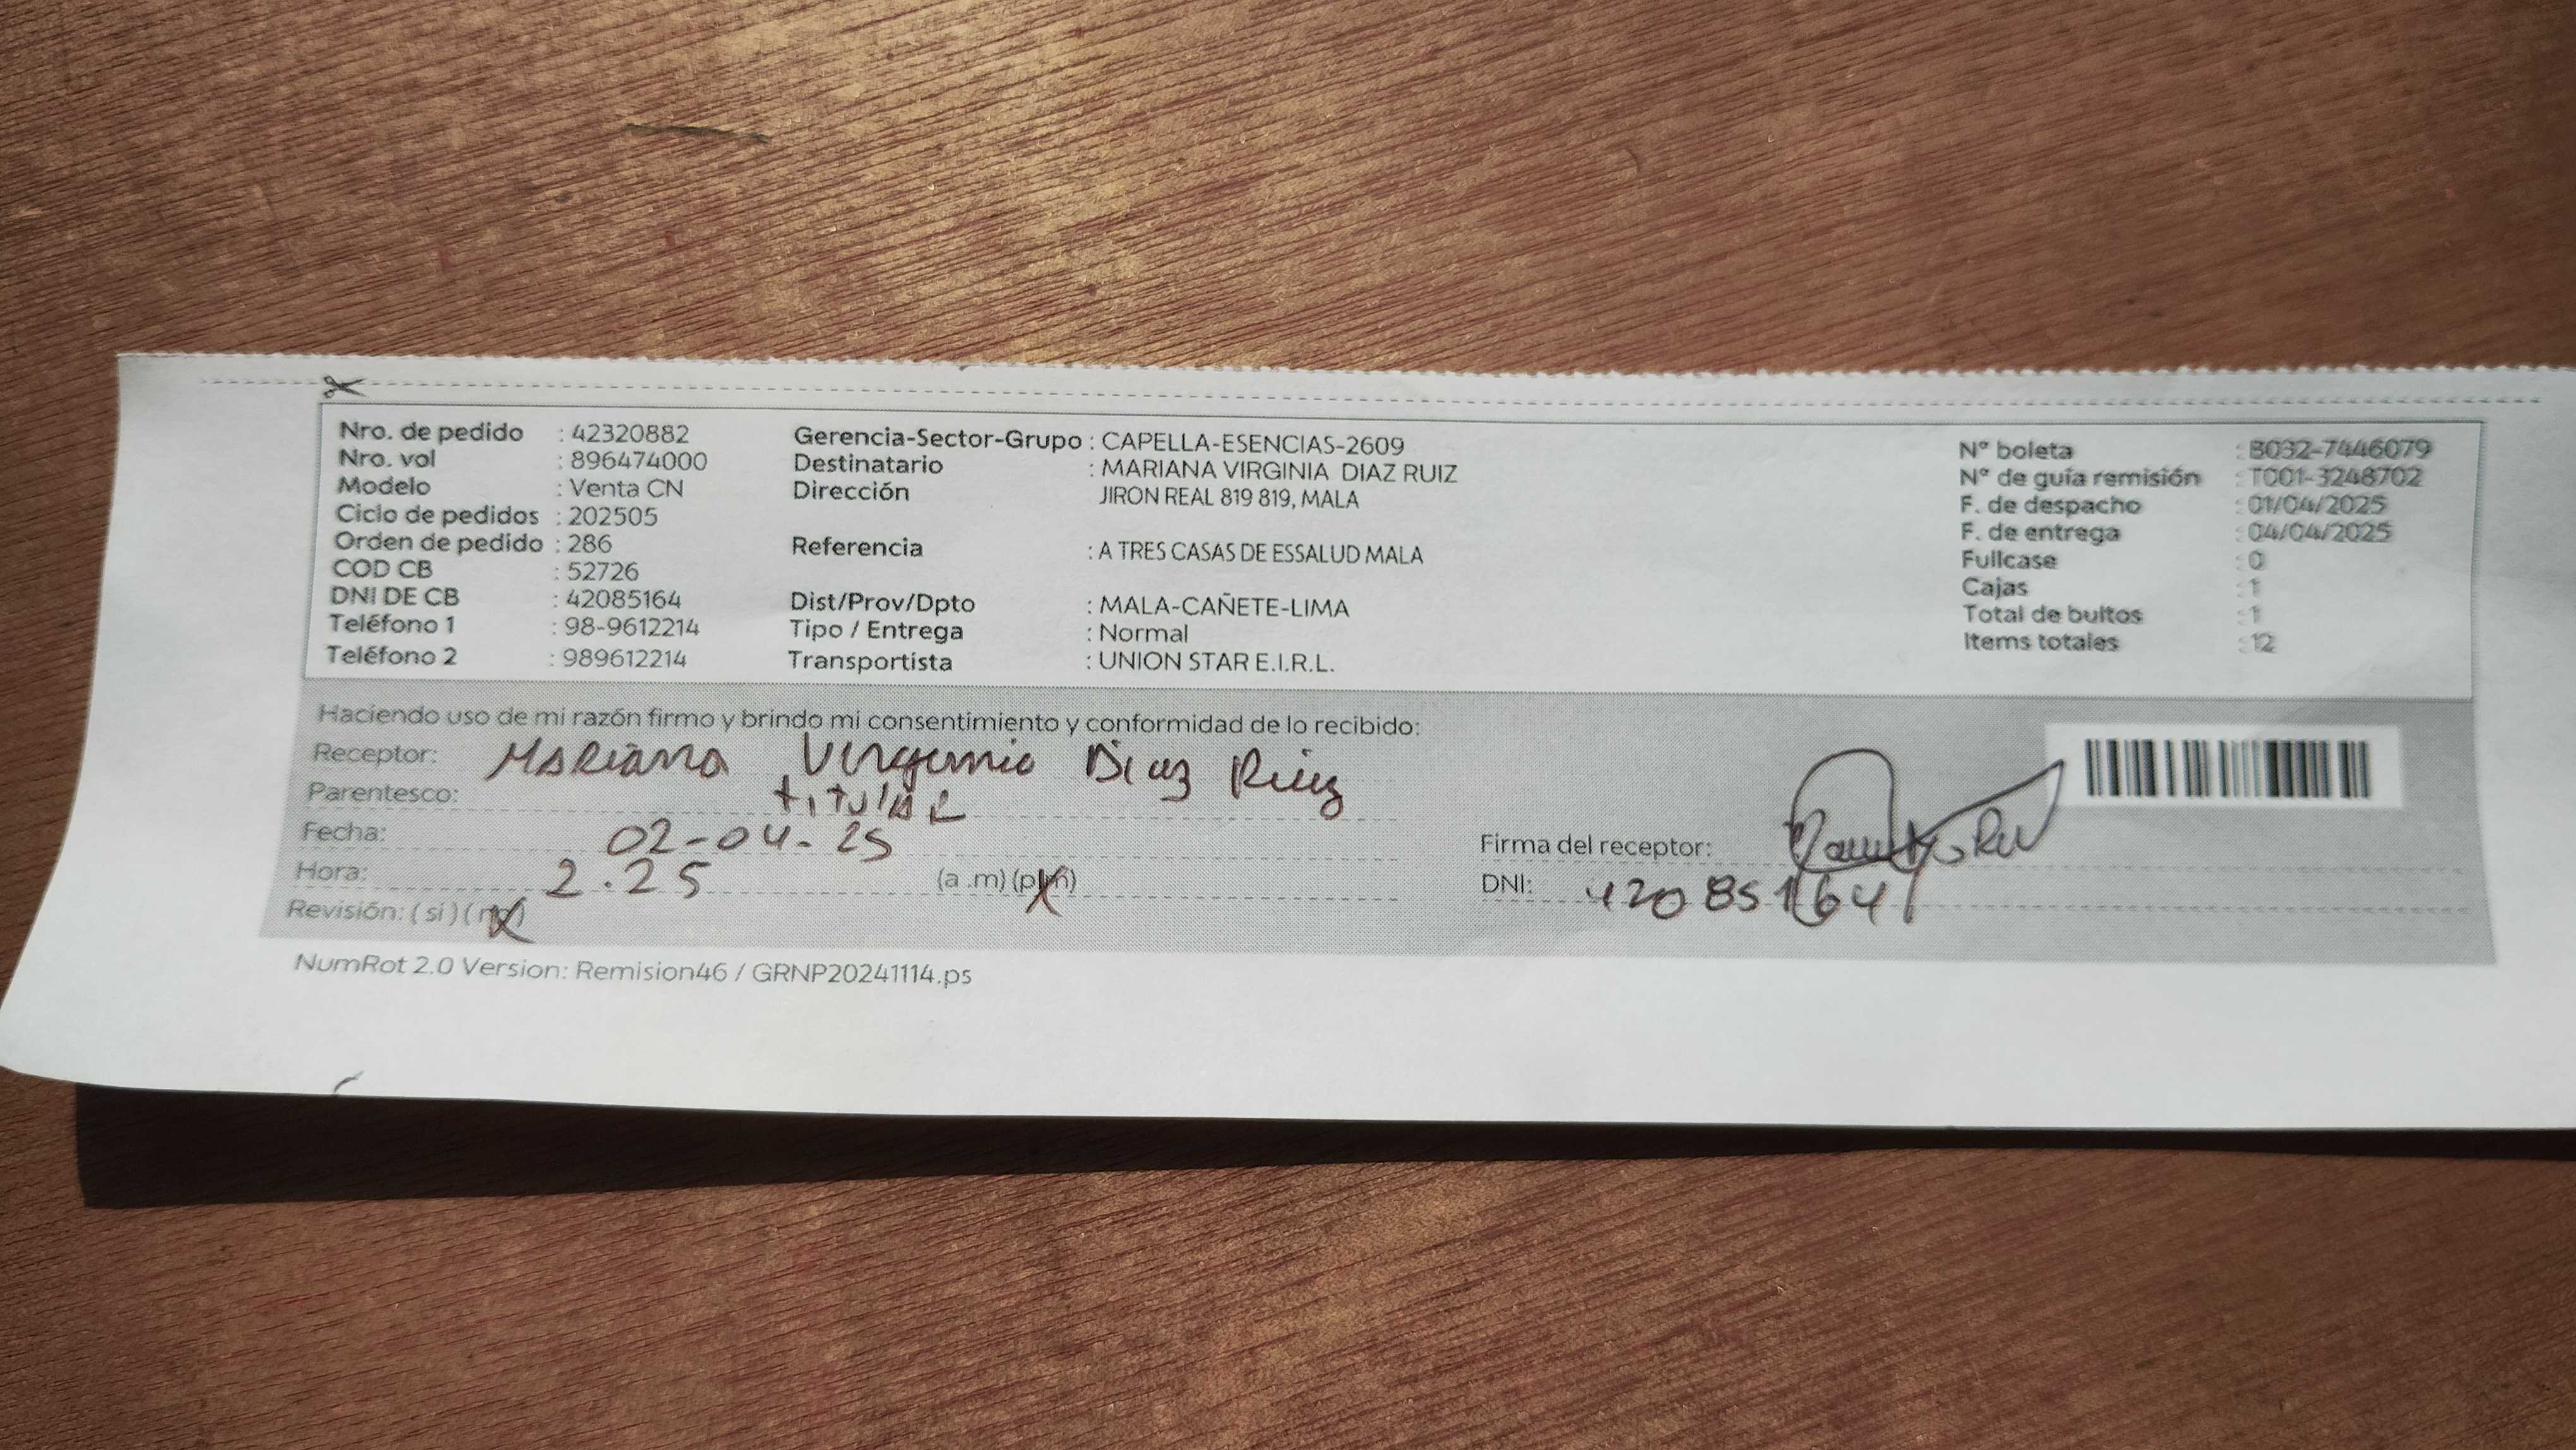 Nro. de pedido : 42320882
Nro. vol : 896474000
Modelo : Venta CN
Ciclo de pedidos : 202505
Orden de pedido : 286
COD CB : 52726
DNI DE CB : 42085164
Teléfono 1 : 98-9612214
Teléfono 2 : 989612214
Gerencia-Sector-Grupo : CAPELLA-ESENCIAS-2609
Destinatario : MARIANA VIRGINIA DIAZ RUIZ
Dirección JIRON REAL 819 819, MALA
Referencia : A TRES CASAS DE ESSALUD MALA
Dist/Prov/Dpto : MALA-CAÑETE-LIMA
Tipo / Entrega : Normal
Transportista : UNION STAR E.I.R.L.
N° boleta : B032-7446079
N° de guía remisión : T001-3248702
F. de despacho : 01/04/2025
F. de entrega : 04/04/2025
Fullcase : 0
Cajas : 1
Total de bultos : 1
Items totales : 12
Haciendo uso de mi razón firmo y brindo mi consentimiento y conformidad de lo recibido:
Receptor: Mariana Virginia Diaz Ruiz
Parentesco: titular
Fecha: 02-04-25
Hora: 2.25 (a .m) (p.m)
Revisión: ( si ) ( no )
Firma del receptor:
DNI: 42085164
NumRot 2.0 Version: Remision46 / GRNP20241114.ps